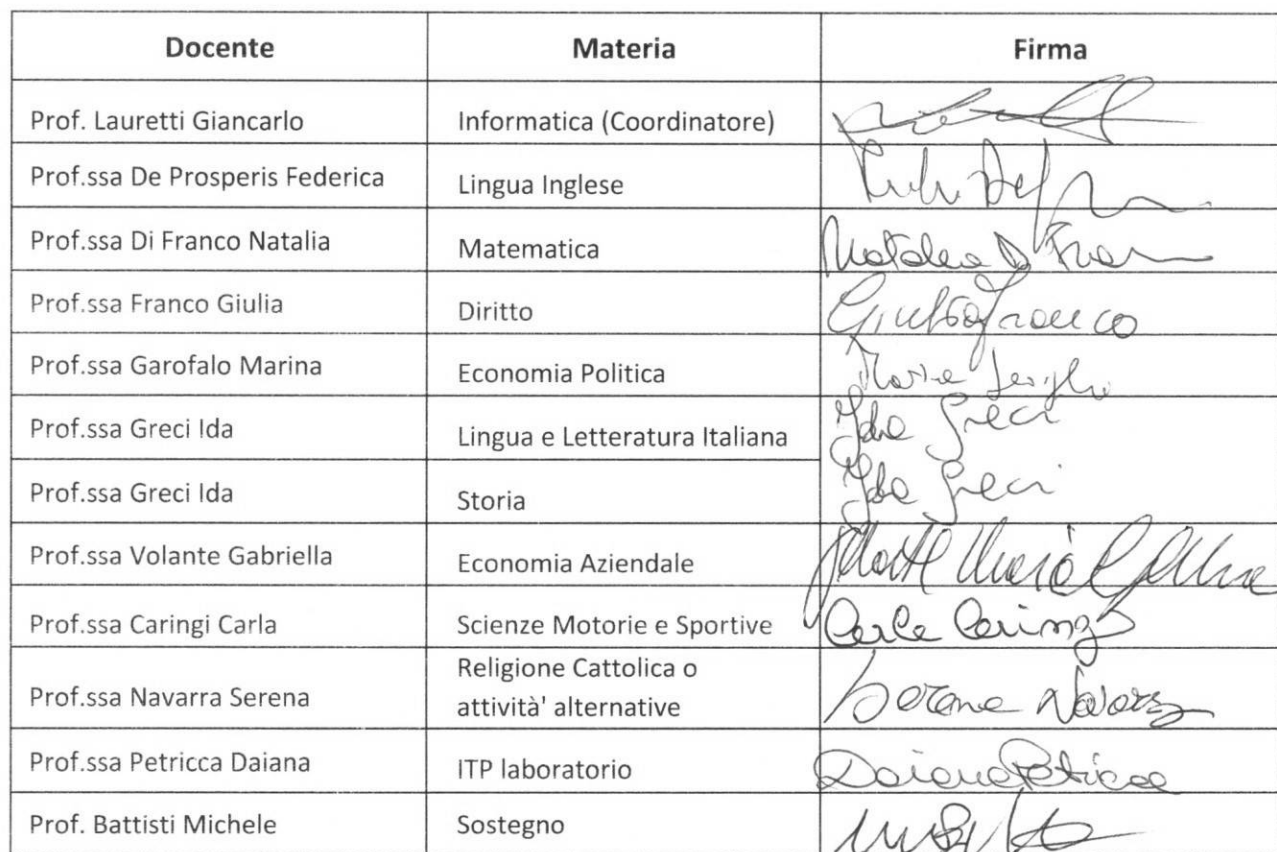 Docente Materia Firma
Prof. Lauretti Giancarlo Informatica (Coordinatore)
Prof.ssa De Prosperis Federica Lingua Inglese
Prof.ssa Di Franco Natalia Matematica Natalia Di Fran
Prof.ssa Franco Giulia Diritto Giulia Franco
Prof.ssa Garofalo Marina Economia Politica
Prof.ssa Greci Ida Lingua e Letteratura Italiana Ida Greci
Prof.ssa Greci Ida Storia Ida Greci
Prof.ssa Volante Gabriella Economia Aziendale
Prof.ssa Caringi Carla Scienze Motorie e Sportive Carla Caringi
Prof.ssa Navarra Serena Religione Cattolica o
attività' alternative Serena Navarra
Prof.ssa Petricca Daiana ITP laboratorio Daiana Petricca
Prof. Battisti Michele Sostegno